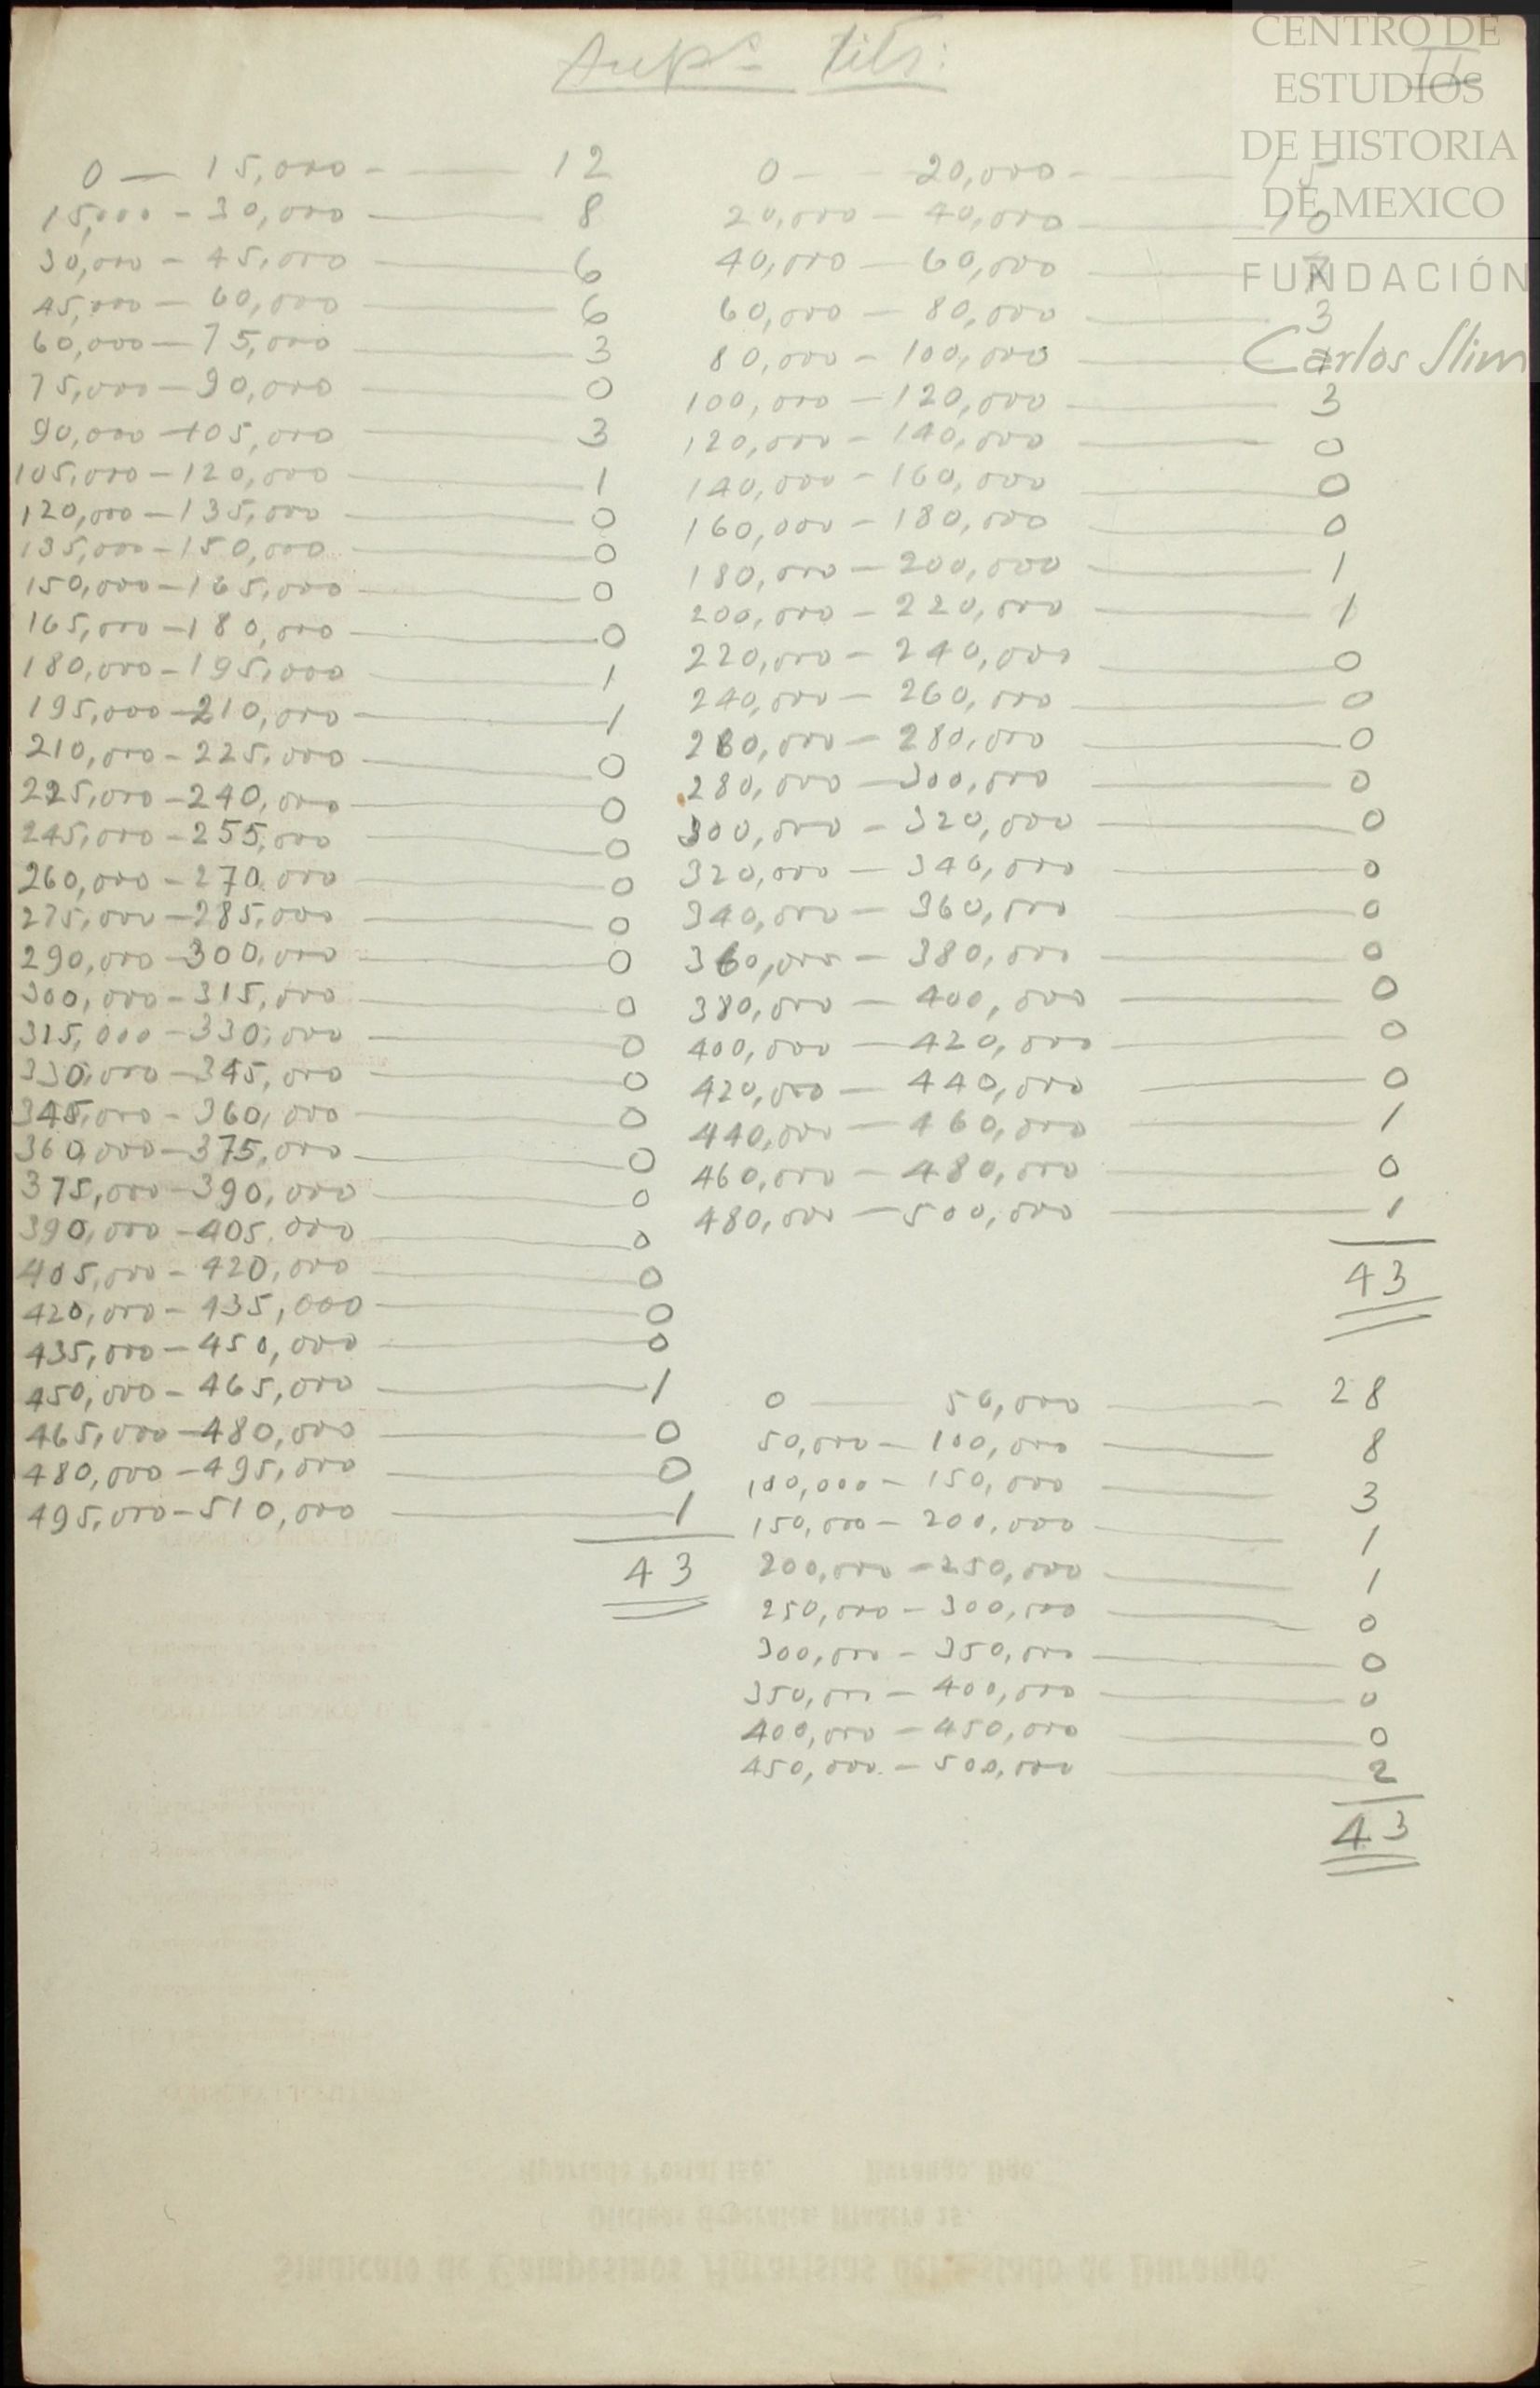 Sups tits:
II
CENTRO DE
ESTUDIOS
DE HISTORIA
DE MEXICO
FUNDACIÓN
Carlos Slim
0 — 15,000 - — 12
15,000 - 30,000 — 8
30,000 - 45,000 — 6
45,000 - 60,000 — 6
60,000 - 75,000 — 3
75,000 - 90,000 — 0
90,000 - 105,000 — 3
105,000 - 120,000 — 1
120,000 - 135,000 — 0
135,000 - 150,000 — 0
150,000 - 165,000 — 0
165,000 - 180,000 — 0
180,000 - 195,000 — 1
195,000 - 210,000 — 1
210,000 - 225,000 — 0
225,000 - 240,000 — 0
245,000 - 255,000 — 0
260,000 - 270,000 — 0
275,000 - 285,000 — 0
290,000 - 300,000 — 0
300,000 - 315,000 — 0
315,000 - 330,000 — 0
330,000 - 345,000 — 0
345,000 - 360,000 — 0
360,000 - 375,000 — 0
375,000 - 390,000 — 0
390,000 - 405,000 — 0
405,000 - 420,000 — 0
420,000 - 435,000 — 0
435,000 - 450,000 — 0
450,000 - 465,000 — 1
465,000 - 480,000 — 0
480,000 - 495,000 — 0
495,000 - 510,000 — 1
43
0 — - 20,000 - — 15
20,000 - 40,000 — 10
40,000 - 60,000 — 7
60,000 - 80,000 — 3
80,000 - 100,000 — 1
100,000 - 120,000 — 3
120,000 - 140,000 — 0
140,000 - 160,000 — 0
160,000 - 180,000 — 0
180,000 - 200,000 — 1
200,000 - 220,000 — 1
220,000 - 240,000 — 0
240,000 - 260,000 — 0
260,000 - 280,000 — 0
280,000 - 300,000 — 0
300,000 - 320,000 — 0
320,000 - 340,000 — 0
340,000 - 360,000 — 0
360,000 - 380,000 — 0
380,000 - 400,000 — 0
400,000 - 420,000 — 0
420,000 - 440,000 — 0
440,000 - 460,000 — 1
460,000 - 480,000 — 0
480,000 - 500,000 — 1
43
0 — 50,000 — 28
50,000 - 100,000 — 8
100,000 - 150,000 — 3
150,000 - 200,000 — 1
200,000 - 250,000 — 1
250,000 - 300,000 — 0
300,000 - 350,000 — 0
350,000 - 400,000 — 0
400,000 - 450,000 — 0
450,000 - 500,000 — 2
43
Sindicato de Campesinos Agraristas del Estado de Durango